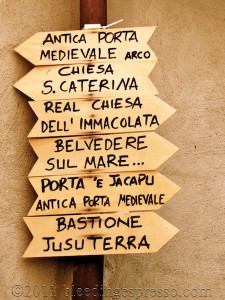 ANTICA PORTA
MEDIEVALE ARCO
CHIESA
S. CATERINA
REAL CHIESA
DELL'IMMACOLATA
BELVEDERE
SUL MARE...
PORTA 'E JACAPU
ANTICA PORTA MEDIEVALE
BASTIONE
JUSUTERRA
©2011 bleedingespresso.com